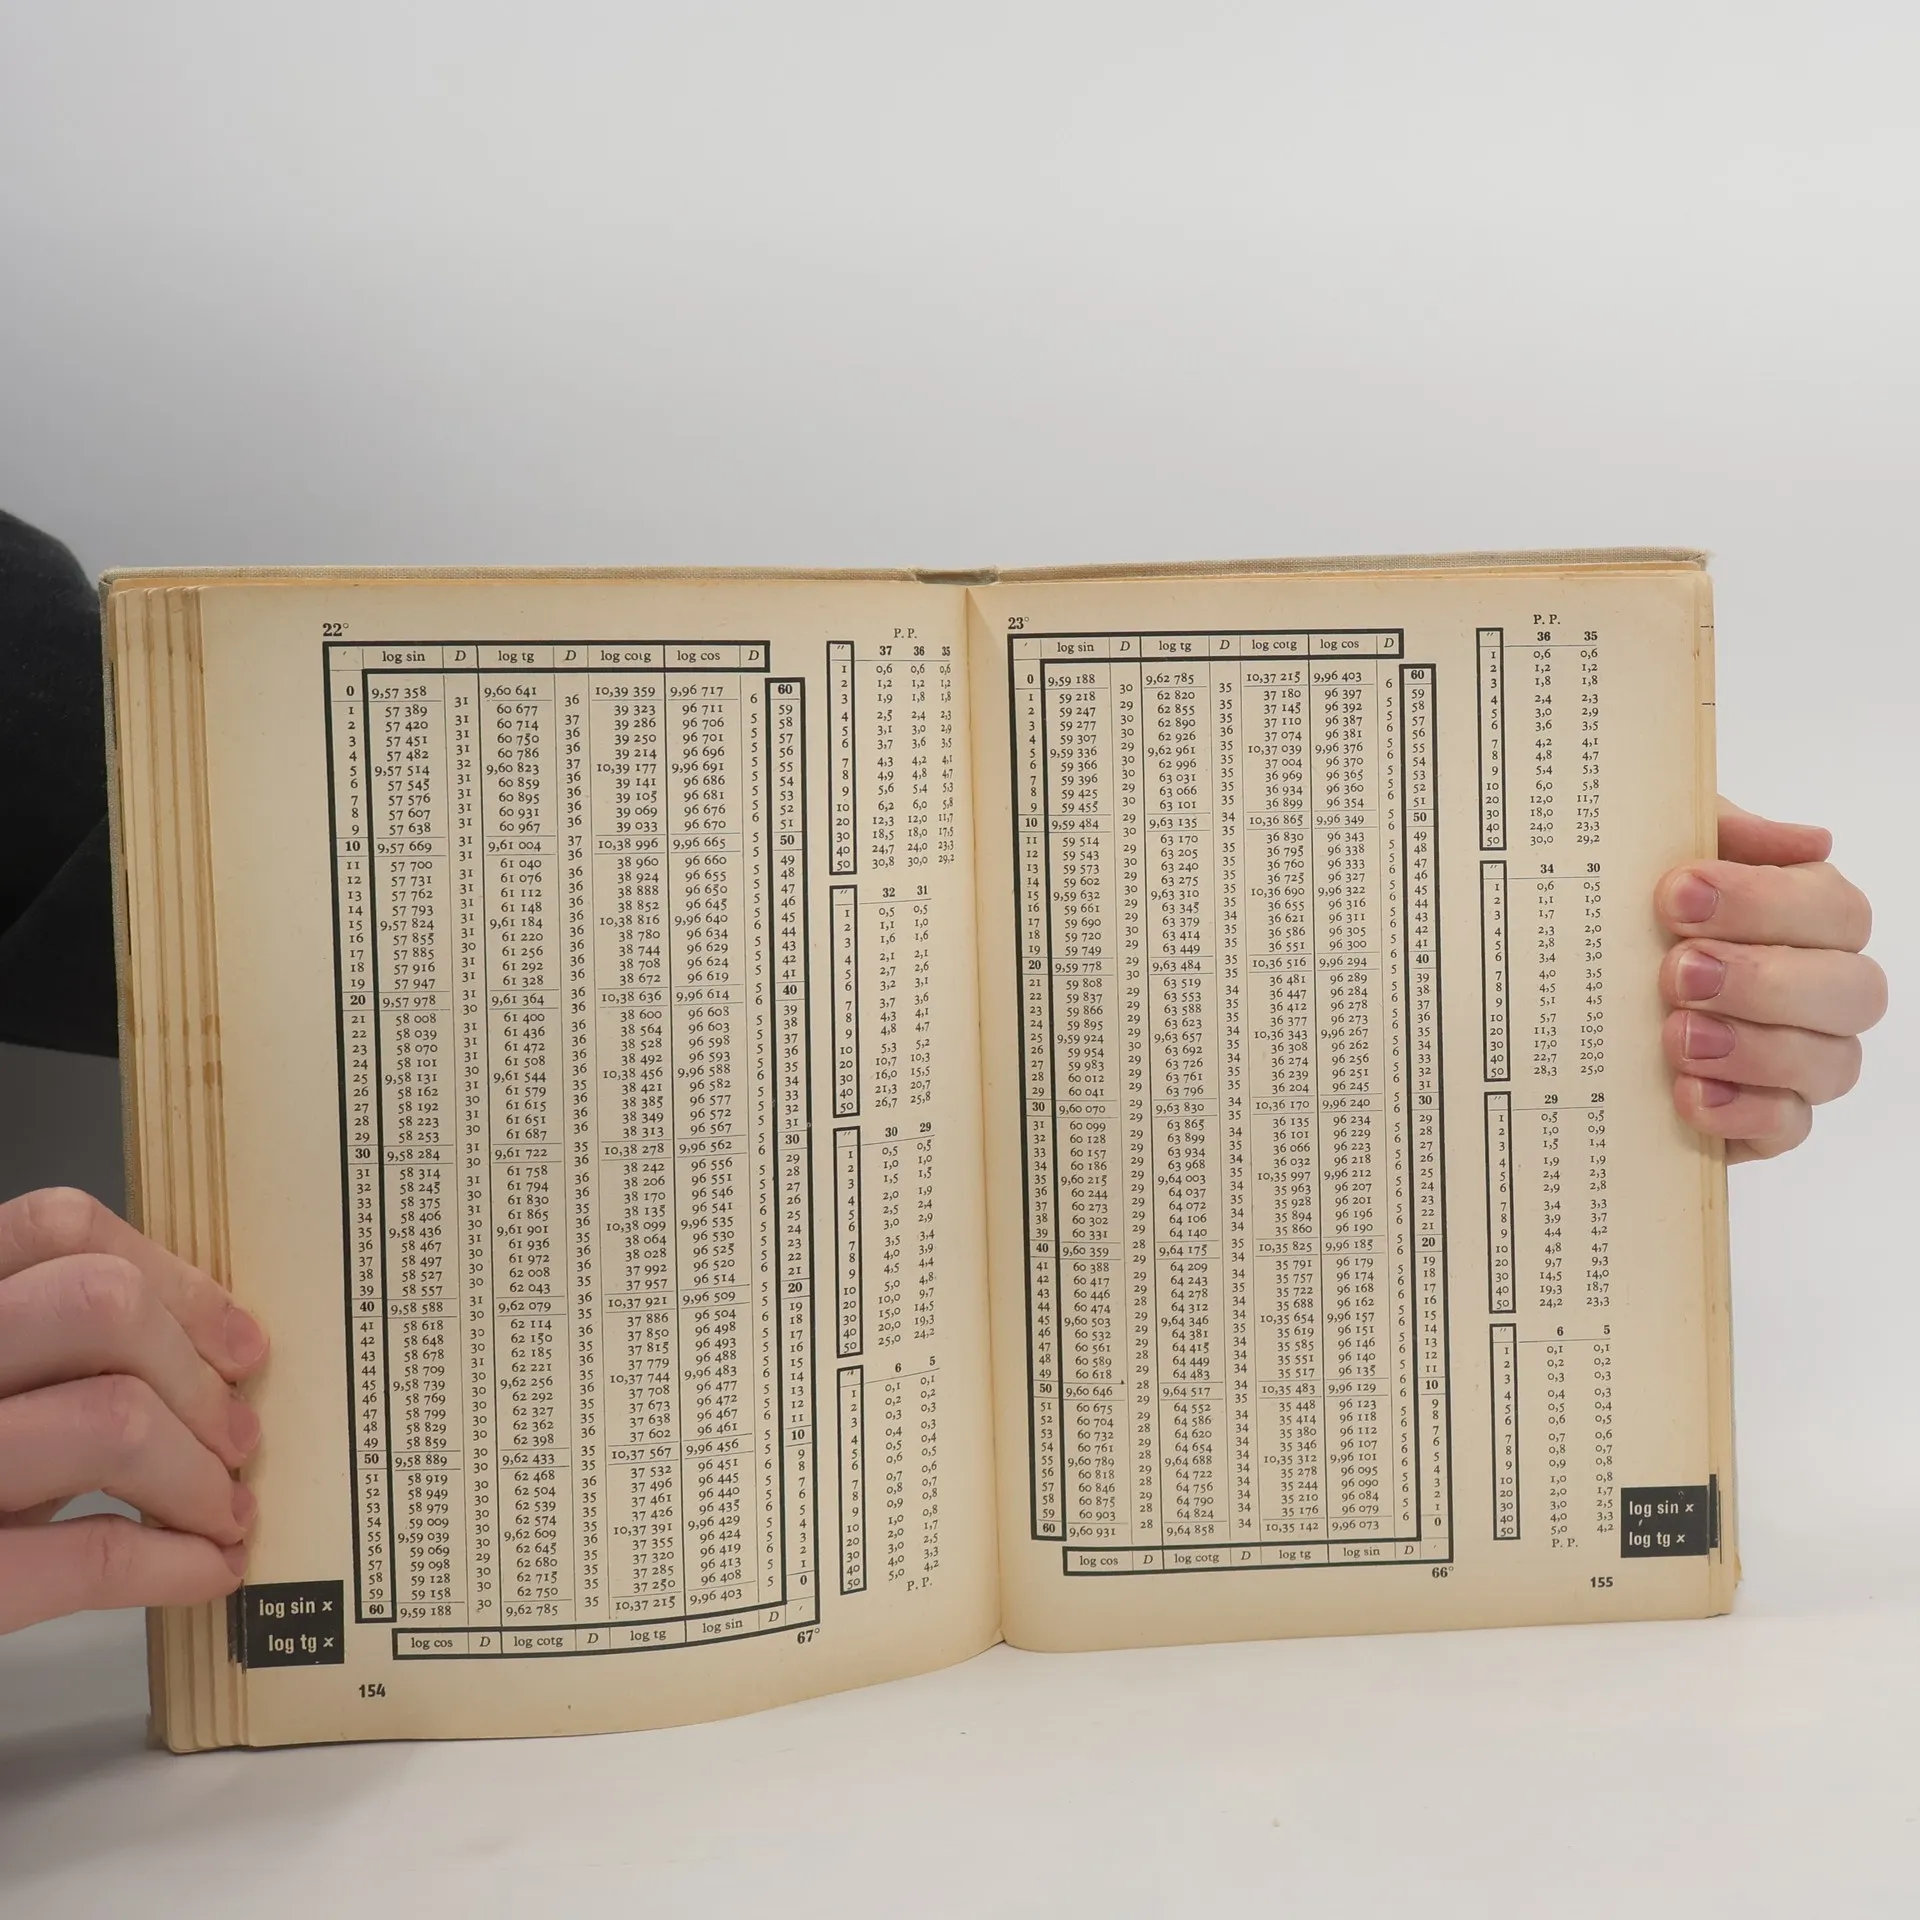 22°
' log sin D log tg D log cotg log cos D
0 9,57 358 31 9,60 641 36 10,39 359 9,96 717 6 60
1 57 389 31 60 677 37 39 323 96 711 5 59
2 57 420 31 60 714 36 39 286 96 706 5 58
3 57 451 31 60 750 36 39 250 96 701 5 57
4 57 482 32 60 786 37 39 214 96 696 5 56
5 9,57 514 31 9,60 823 36 10,39 177 9,96 691 5 55
6 57 545 31 60 859 36 39 141 96 686 5 54
7 57 576 31 60 895 36 39 105 96 681 5 53
8 57 607 31 60 931 36 39 069 96 676 6 52
9 57 638 31 60 967 37 39 033 96 670 5 51
10 9,57 669 31 9,61 004 36 10,38 996 9,96 665 5 50
11 57 700 31 61 040 36 38 960 96 660 5 49
12 57 731 31 61 076 36 38 924 96 655 5 48
13 57 762 31 61 112 36 38 888 96 650 5 47
14 57 793 31 61 148 36 38 852 96 645 5 46
15 9,57 824 31 9,61 184 36 10,38 816 9,96 640 6 45
16 57 855 30 61 220 36 38 780 96 634 5 44
17 57 885 31 61 256 36 38 744 96 629 5 43
18 57 916 31 61 292 36 38 708 96 624 5 42
19 57 947 31 61 328 36 38 672 96 619 5 41
20 9,57 978 30 9,61 364 36 10,38 636 9,96 614 6 40
21 58 008 31 61 400 36 38 600 96 608 5 39
22 58 039 31 61 436 36 38 564 96 603 5 38
23 58 070 31 61 472 36 38 528 96 598 5 37
24 58 101 30 61 508 36 38 492 96 593 5 36
25 9,58 131 31 9,61 544 35 10,38 456 9,96 588 6 35
26 58 162 30 61 579 36 38 421 96 582 5 34
27 58 192 31 61 615 36 38 385 96 577 5 33
28 58 223 30 61 651 36 38 349 96 572 5 32
29 58 253 31 61 687 35 38 313 96 567 5 31
30 9,58 284 30 9,61 722 36 10,38 278 9,96 562 6 30
31 58 314 31 61 758 36 38 242 96 556 5 29
32 58 245 30 61 794 36 38 206 96 551 5 28
33 58 375 31 61 830 35 38 170 96 546 5 27
34 58 406 30 61 865 36 38 135 96 541 6 26
35 9,58 436 31 9,61 901 35 10,38 099 9,96 535 5 25
36 58 467 30 61 936 36 38 064 96 530 5 24
37 58 497 30 61 972 36 38 028 96 525 5 23
38 58 527 30 62 008 35 37 992 96 520 6 22
39 58 557 31 62 043 36 37 957 96 514 5 21
40 9,58 588 30 9,62 079 35 10,37 921 9,96 509 5 20
41 58 618 30 62 114 36 37 886 96 504 6 19
42 58 648 30 62 150 35 37 850 96 498 5 18
43 58 678 31 62 185 36 37 815 96 493 5 17
44 58 709 30 62 221 35 37 779 96 488 5 16
45 9,58 739 30 9,62 256 36 10,37 744 9,96 483 6 15
46 58 769 30 62 292 35 37 708 96 477 5 14
47 58 799 30 62 327 35 37 673 96 472 5 13
48 58 829 30 62 362 36 37 638 96 467 6 12
49 58 859 30 62 398 35 37 602 96 461 5 11
50 9,58 889 30 9,62 433 35 10,37 567 9,96 456 5 10
51 58 919 30 62 468 36 37 532 96 451 6 9
52 58 949 30 62 504 35 37 496 96 445 5 8
53 58 979 30 62 539 35 37 461 96 440 5 7
54 59 009 30 62 574 35 37 426 96 435 6 6
55 9,59 039 30 9,62 609 36 10,37 391 9,96 429 5 5
56 59 069 29 62 645 35 37 355 96 424 5 4
57 59 098 30 62 680 35 37 320 96 419 6 3
58 59 128 30 62 715 35 37 285 96 413 5 2
59 59 158 30 62 750 35 37 250 96 408 5 1
60 9,59 188 9,62 785 10,37 215 9,96 403 0
log cos D log cotg D log tg log sin D '
67°
P. P.
" 37 36 35
1 0,6 0,6 0,6
2 1,2 1,2 1,2
3 1,9 1,8 1,8
4 2,5 2,4 2,3
5 3,1 3,0 2,9
6 3,7 3,6 3,5
7 4,3 4,2 4,1
8 4,9 4,8 4,7
9 5,6 5,4 5,3
10 6,2 6,0 5,8
20 12,3 12,0 11,7
30 18,5 18,0 17,5
40 24,7 24,0 23,3
50 30,8 30,0 29,2
" 32 31
1 0,5 0,5
2 1,1 1,0
3 1,6 1,6
4 2,1 2,1
5 2,7 2,6
6 3,2 3,1
7 3,7 3,6
8 4,3 4,1
9 4,8 4,7
10 5,3 5,2
20 10,7 10,3
30 16,0 15,5
40 21,3 20,7
50 26,7 25,8
" 30 29
1 0,5 0,5
2 1,0 1,0
3 1,5 1,5
4 2,0 1,9
5 2,5 2,4
6 3,0 2,9
7 3,5 3,4
8 4,0 3,9
9 4,5 4,4
10 5,0 4,8
20 10,0 9,7
30 15,0 14,5
40 20,0 19,3
50 25,0 24,2
" 6 5
1 0,1 0,1
2 0,2 0,2
3 0,3 0,3
4 0,4 0,3
5 0,5 0,4
6 0,6 0,5
7 0,7 0,6
8 0,8 0,7
9 0,9 0,8
10 1,0 0,8
20 2,0 1,7
30 3,0 2,5
40 4,0 3,3
50 5,0 4,2
P. P.
log sin x
log tg x
154
23°
' log sin D log tg D log cotg log cos D
0 9,59 188 30 9,62 785 35 10,37 215 9,96 403 6 60
1 59 218 29 62 820 35 37 180 96 397 5 59
2 59 247 30 62 855 35 37 145 96 392 5 58
3 59 277 30 62 890 36 37 110 96 387 6 57
4 59 307 29 62 926 35 37 074 96 381 5 56
5 9,59 336 30 9,62 961 35 10,37 039 9,96 376 6 55
6 59 366 30 62 996 35 37 004 96 370 5 54
7 59 396 29 63 031 35 36 969 96 365 5 53
8 59 425 30 63 066 35 36 934 96 360 6 52
9 59 455 29 63 101 34 36 899 96 354 5 51
10 9,59 484 30 9,63 135 35 10,36 865 9,96 349 6 50
11 59 514 29 63 170 35 36 830 96 343 5 49
12 59 543 30 63 205 35 36 795 96 338 5 48
13 59 573 29 63 240 35 36 760 96 333 6 47
14 59 602 30 63 275 35 36 725 96 327 5 46
15 9,59 632 29 9,63 310 35 10,36 690 9,96 322 6 45
16 59 661 29 63 345 34 36 655 96 316 5 44
17 59 690 30 63 379 35 36 621 96 311 6 43
18 59 720 29 63 414 35 36 586 96 305 5 42
19 59 749 29 63 449 35 36 551 96 300 6 41
20 9,59 778 30 9,63 484 35 10,36 516 9,96 294 5 40
21 59 808 29 63 519 34 36 481 96 289 5 39
22 59 837 29 63 553 35 36 447 96 284 6 38
23 59 866 29 63 588 35 36 412 96 278 5 37
24 59 895 29 63 623 34 36 377 96 273 6 36
25 9,59 924 30 9,63 657 35 10,36 343 9,96 267 5 35
26 59 954 29 63 692 34 36 308 96 262 6 34
27 59 983 29 63 726 35 36 274 96 256 5 33
28 60 012 29 63 761 35 36 239 96 251 6 32
29 60 041 29 63 796 34 36 204 96 245 5 31
30 9,60 070 29 9,63 830 35 10,36 170 9,96 240 6 30
31 60 099 29 63 865 34 36 135 96 234 5 29
32 60 128 29 63 899 35 36 101 96 229 6 28
33 60 157 29 63 934 34 36 066 96 223 5 27
34 60 186 29 63 968 35 36 032 96 218 6 26
35 9,60 215 29 9,64 003 34 10,35 997 9,96 212 5 25
36 60 244 29 64 037 35 35 963 96 207 6 24
37 60 273 29 64 072 34 35 928 96 201 5 23
38 60 302 29 64 106 34 35 894 96 196 6 22
39 60 331 28 64 140 35 35 860 96 190 5 21
40 9,60 359 29 9,64 175 34 10,35 825 9,96 185 6 20
41 60 388 29 64 209 34 35 791 96 179 5 19
42 60 417 29 64 243 35 35 757 96 174 6 18
43 60 446 28 64 278 34 35 722 96 168 6 17
44 60 474 29 64 312 34 35 688 96 162 5 16
45 9,60 503 29 9,64 346 35 10,35 654 9,96 157 6 15
46 60 532 29 64 381 34 35 619 96 151 5 14
47 60 561 28 64 415 34 35 585 96 146 6 13
48 60 589 29 64 449 34 35 551 96 140 5 12
49 60 618 28 64 483 34 35 517 96 135 6 11
50 9,60 646 29 9,64 517 35 10,35 483 9,96 129 6 10
51 60 675 29 64 552 34 35 448 96 123 5 9
52 60 704 28 64 586 34 35 414 96 118 6 8
53 60 732 29 64 620 34 35 380 96 112 5 7
54 60 761 28 64 654 34 35 346 96 107 6 6
55 9,60 789 29 9,64 688 34 10,35 312 9,96 101 6 5
56 60 818 28 64 722 34 35 278 96 095 5 4
57 60 846 29 64 756 34 35 244 96 090 6 3
58 60 875 28 64 790 34 35 210 96 084 5 2
59 60 903 28 64 824 34 35 176 96 079 6 1
60 9,60 931 9,64 858 10,35 142 9,96 073 0
log cos D log cotg D log tg log sin D '
66°
P. P.
" 36 35
1 0,6 0,6
2 1,2 1,2
3 1,8 1,8
4 2,4 2,3
5 3,0 2,9
6 3,6 3,5
7 4,2 4,1
8 4,8 4,7
9 5,4 5,3
10 6,0 5,8
20 12,0 11,7
30 18,0 17,5
40 24,0 23,3
50 30,0 29,2
" 34 30
1 0,6 0,5
2 1,1 1,0
3 1,7 1,5
4 2,3 2,0
5 2,8 2,5
6 3,4 3,0
7 4,0 3,5
8 4,5 4,0
9 5,1 4,5
10 5,7 5,0
20 11,3 10,0
30 17,0 15,0
40 22,7 20,0
50 28,3 25,0
" 29 28
1 0,5 0,5
2 1,0 0,9
3 1,5 1,4
4 1,9 1,9
5 2,4 2,3
6 2,9 2,8
7 3,4 3,3
8 3,9 3,7
9 4,4 4,2
10 4,8 4,7
20 9,7 9,3
30 14,5 14,0
40 19,3 18,7
50 24,2 23,3
" 6 5
1 0,1 0,1
2 0,2 0,2
3 0,3 0,3
4 0,4 0,3
5 0,5 0,4
6 0,6 0,5
7 0,7 0,6
8 0,8 0,7
9 0,9 0,8
10 1,0 0,8
20 2,0 1,7
30 3,0 2,5
40 4,0 3,3
50 5,0 4,2
P. P.
log sin x
log tg x
155